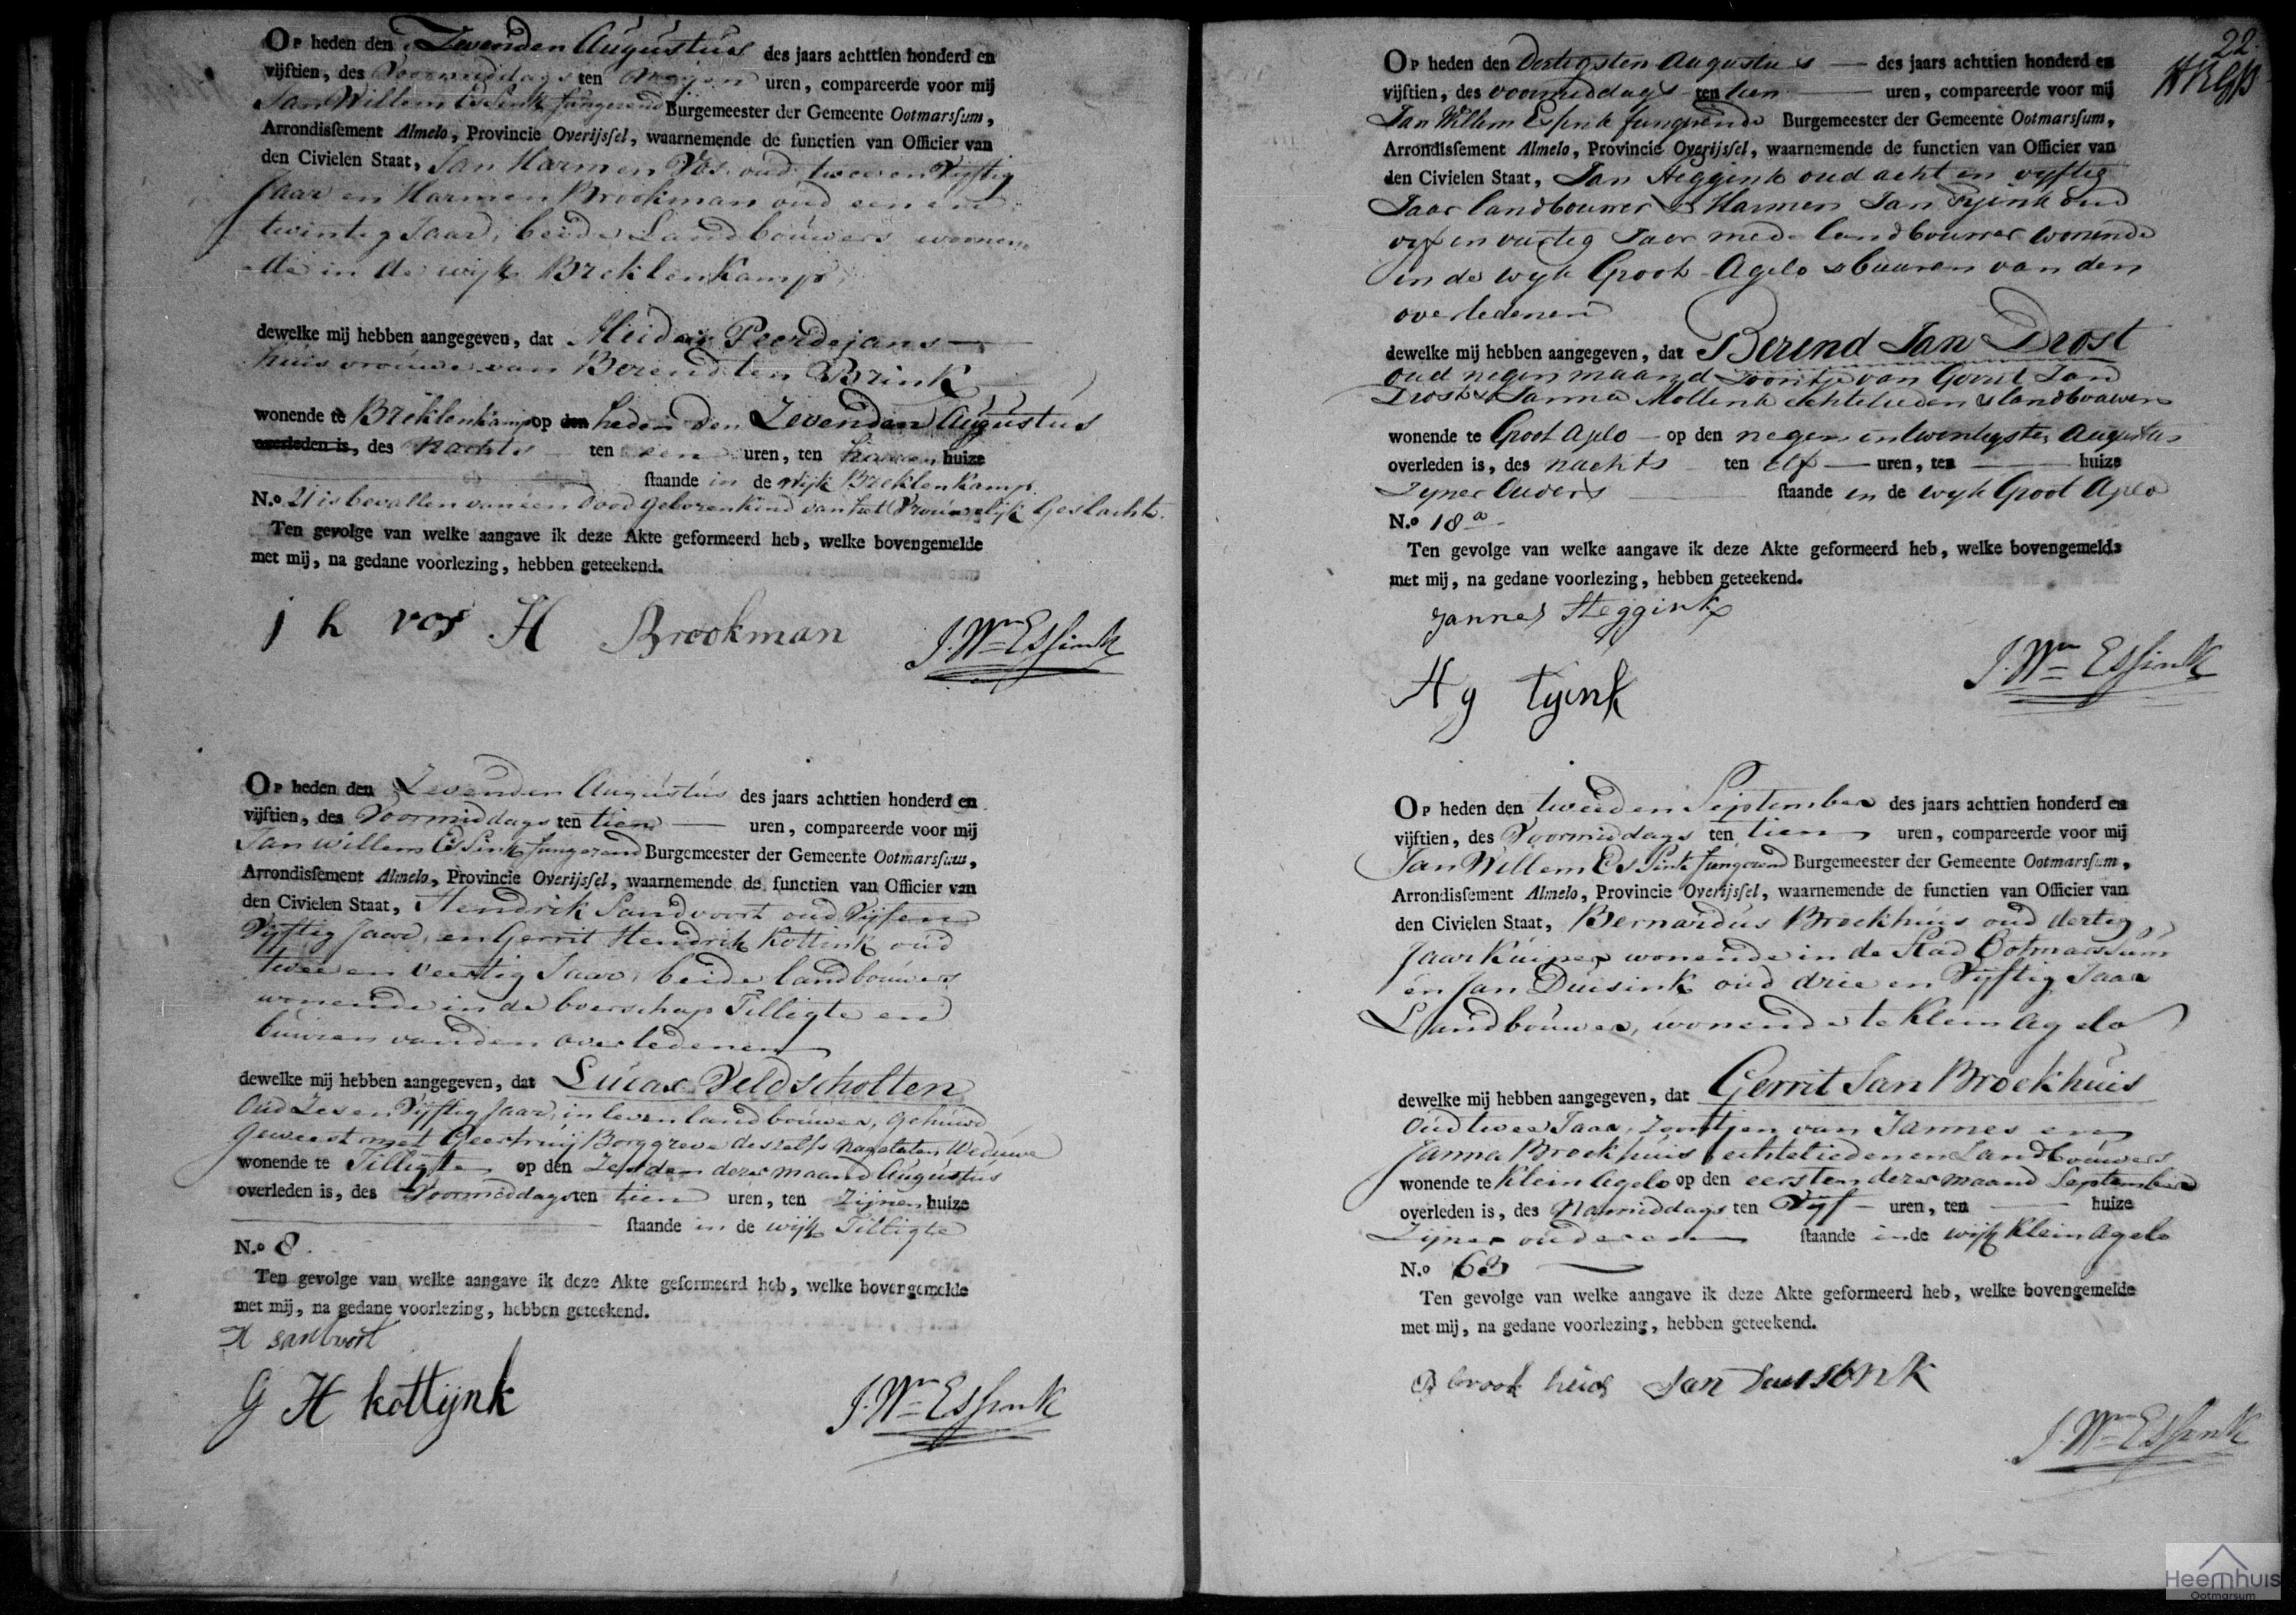 Op heden den Zevenden Augustus des jaars achttien honderd en
vijftien, des Voormiddags ten negen uren, compareerde voor mij
Jan Willem Essink fungerend Burgemeester der Gemeente Ootmarsſum,
Arrondisſement Almelo, Provincie Overijsſel, waarnemende de functien van Officier van
den Civielen Staat, Jan Harmen Vos oud twee en Vijftig
Jaar en Harmen Brookman oud een en
twintig Jaar, beide Landbouwers woonen
de in de wijk Breklenkamp,
dewelke mij hebben aangegeven, dat Peerdejans
huisvrouwe van Berend ten Brink
wonende te Breklenkamp op den heden den Zevenden Augustus
overleden is, des Nachts ten een uren, ten haaren huize
ſtaande in de wijk Breklenkamp
N.o 21 is bevallen van een dood geboren kind van het Vrouwelijk Geslacht.
Ten gevolge van welke aangave ik deze Akte geformeerd heb, welke bovengemelde
met mij, na gedane voorlezing, hebben geteekend.
j h vos H Brookman J. Wm Essink
Op heden den Zevenden Augustus des jaars achttien honderd en
vijftien, des Voormiddags ten tien uren, compareerde voor mij
Jan Willem Essink fungerend Burgemeester der Gemeente Ootmarsſum,
Arrondisſement Almelo, Provincie Overijsſel, waarnemende de functien van Officier van
den Civielen Staat, Hendrik Sandvoort oud Vijf en
Vijftig Jaar, en Gerrit Hendrik Kottink oud
twee en veertig Jaar, beide landbouwers
wonende in de boerschap Tilligte en
buuren van den overledenen
dewelke mij hebben aangegeven, dat Lucas Veldscholten
Oud Zes en Vijftig Jaar, in leven landbouwer, gehuwd
geweest met Geertruij Borggreve deszelfs nagelaten Weduwe
wonende te Tilligte op den Zesden dezer maand Augustus
overleden is, des Voormiddags ten tien uren, ten Zijnen huize
ſtaande in de wijk Tilligte
N.o 8.
Ten gevolge van welke aangave ik deze Akte geformeerd heb, welke bovengemelde
met mij, na gedane voorlezing, hebben geteekend.
H sandvort
G H kottijnk J. Wm Essink
22
Op heden den Dertigsten Augustus des jaars achttien honderd en
vijftien, des voormiddags ten tien uren, compareerde voor mij
Jan Willem Essink fungerende Burgemeester der Gemeente Ootmarsſum,
Arrondisſement Almelo, Provincie Overijsſel, waarnemende de functien van Officier van
den Civielen Staat, Jan Heggink oud acht en vyftig
Jaar landbouwer & Harmen Jan Tyink oud
vyf en veertig Jaar mede landbouwer wonende
in de wyk Groot Agelo & buuren van den
overledenen
dewelke mij hebben aangegeven, dat Berend Jan Drost
oud negen maand Zoontje van Gerrit Jan
Drost & Janna Mollink echtelieden & landbouwers
wonende te Groot Agelo op den negen en twintigsten Augustus
overleden is, des nachts ten elf uren, ten huize
Zyner Ouders ſtaande in de wyk Groot Agelo
N.o 18 a
Ten gevolge van welke aangave ik deze Akte geformeerd heb, welke bovengemelde
met mij, na gedane voorlezing, hebben geteekend.
Jannes Heggink
J. Wm Essink
H g tyink
Op heden den tweeden September des jaars achttien honderd en
vijftien, des Voormiddags ten tien uren, compareerde voor mij
Jan Willem Essink fungerend Burgemeester der Gemeente Ootmarsſum,
Arrondisſement Almelo, Provincie Overijsſel, waarnemende de functien van Officier van
den Civielen Staat, Bernardus Broekhuis oud dertig
Jaar Kuiper wonende in de Stad Ootmarssum
en Jan Duisink oud drie en Vijftig Jaar
Landbouwer, wonende te Klein Agelo
dewelke mij hebben aangegeven, dat Gerrit Jan Broekhuis
Oud twee Jaar, Zoontjen van Jannes en
Janna Broekhuis echtelieden en Landbouwers
wonende te Klein Agelo op den eersten dezer maand September
overleden is, des Namiddags ten Vijf uren, ten huize
Zijner ouderen ſtaande in de wijk Klein Agelo
N.o 63
Ten gevolge van welke aangave ik deze Akte geformeerd heb, welke bovengemelde
met mij, na gedane voorlezing, hebben geteekend.
B brook huis Jan Duisink
J. Wm Essink
Heemhuis
Ootmarsum